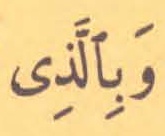 وَبِٱلَّذِى